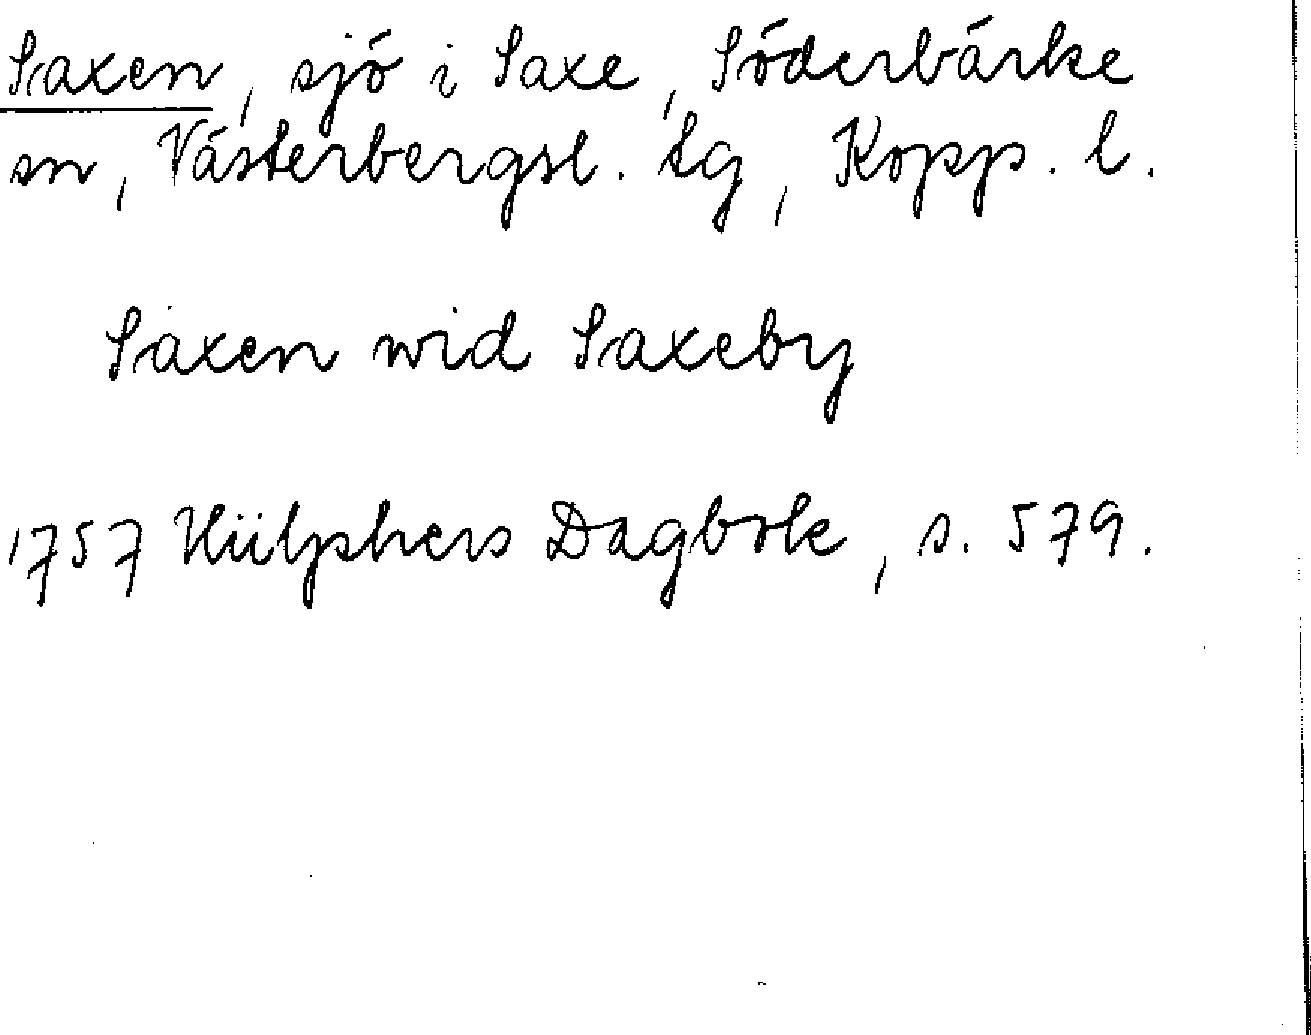 Saxen, sjö i Saxe, Söderbärke
sn, Västerbergsl. tg, Kopp. l.
Saxen wid Saxeby
1757 Hülphers Dagbok, s. 579.